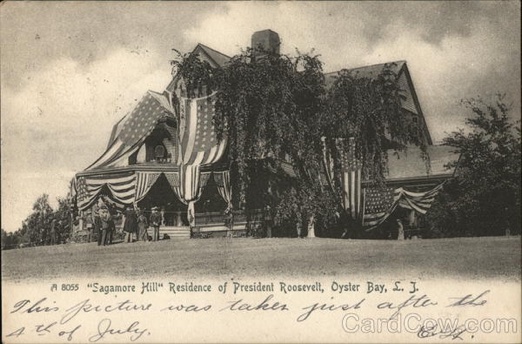 A 8055 "Sagamore Hill" Residence of President Roosevelt, Oyster Bay, L. J.
This picture was taken just after the
4th of July.
CardCow.com